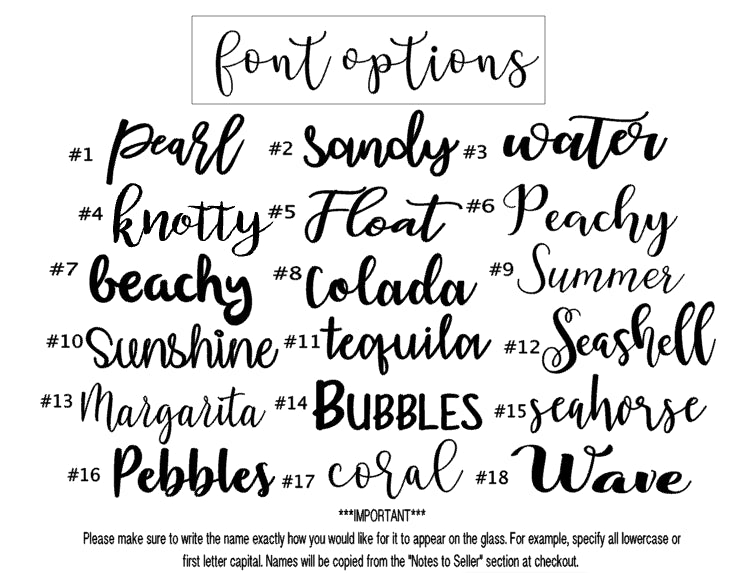 font options
#1 pearl #2 sandy #3 water
#4 knotty #5 Float #6 Peachy
#7 beachy #8 Colada #9 Summer
#10 Sunshine #11 tequila #12 Seashell
#13 Margarita #14 BUBBLES #15 seahorse
#16 Pebbles #17 coral #18 Wave
***IMPORTANT***
Please make sure to write the name exactly how you would like for it to appear on the glass. For example, specify all lowercase or
first letter capital. Names will be copied from the "Notes to Seller" section at checkout.